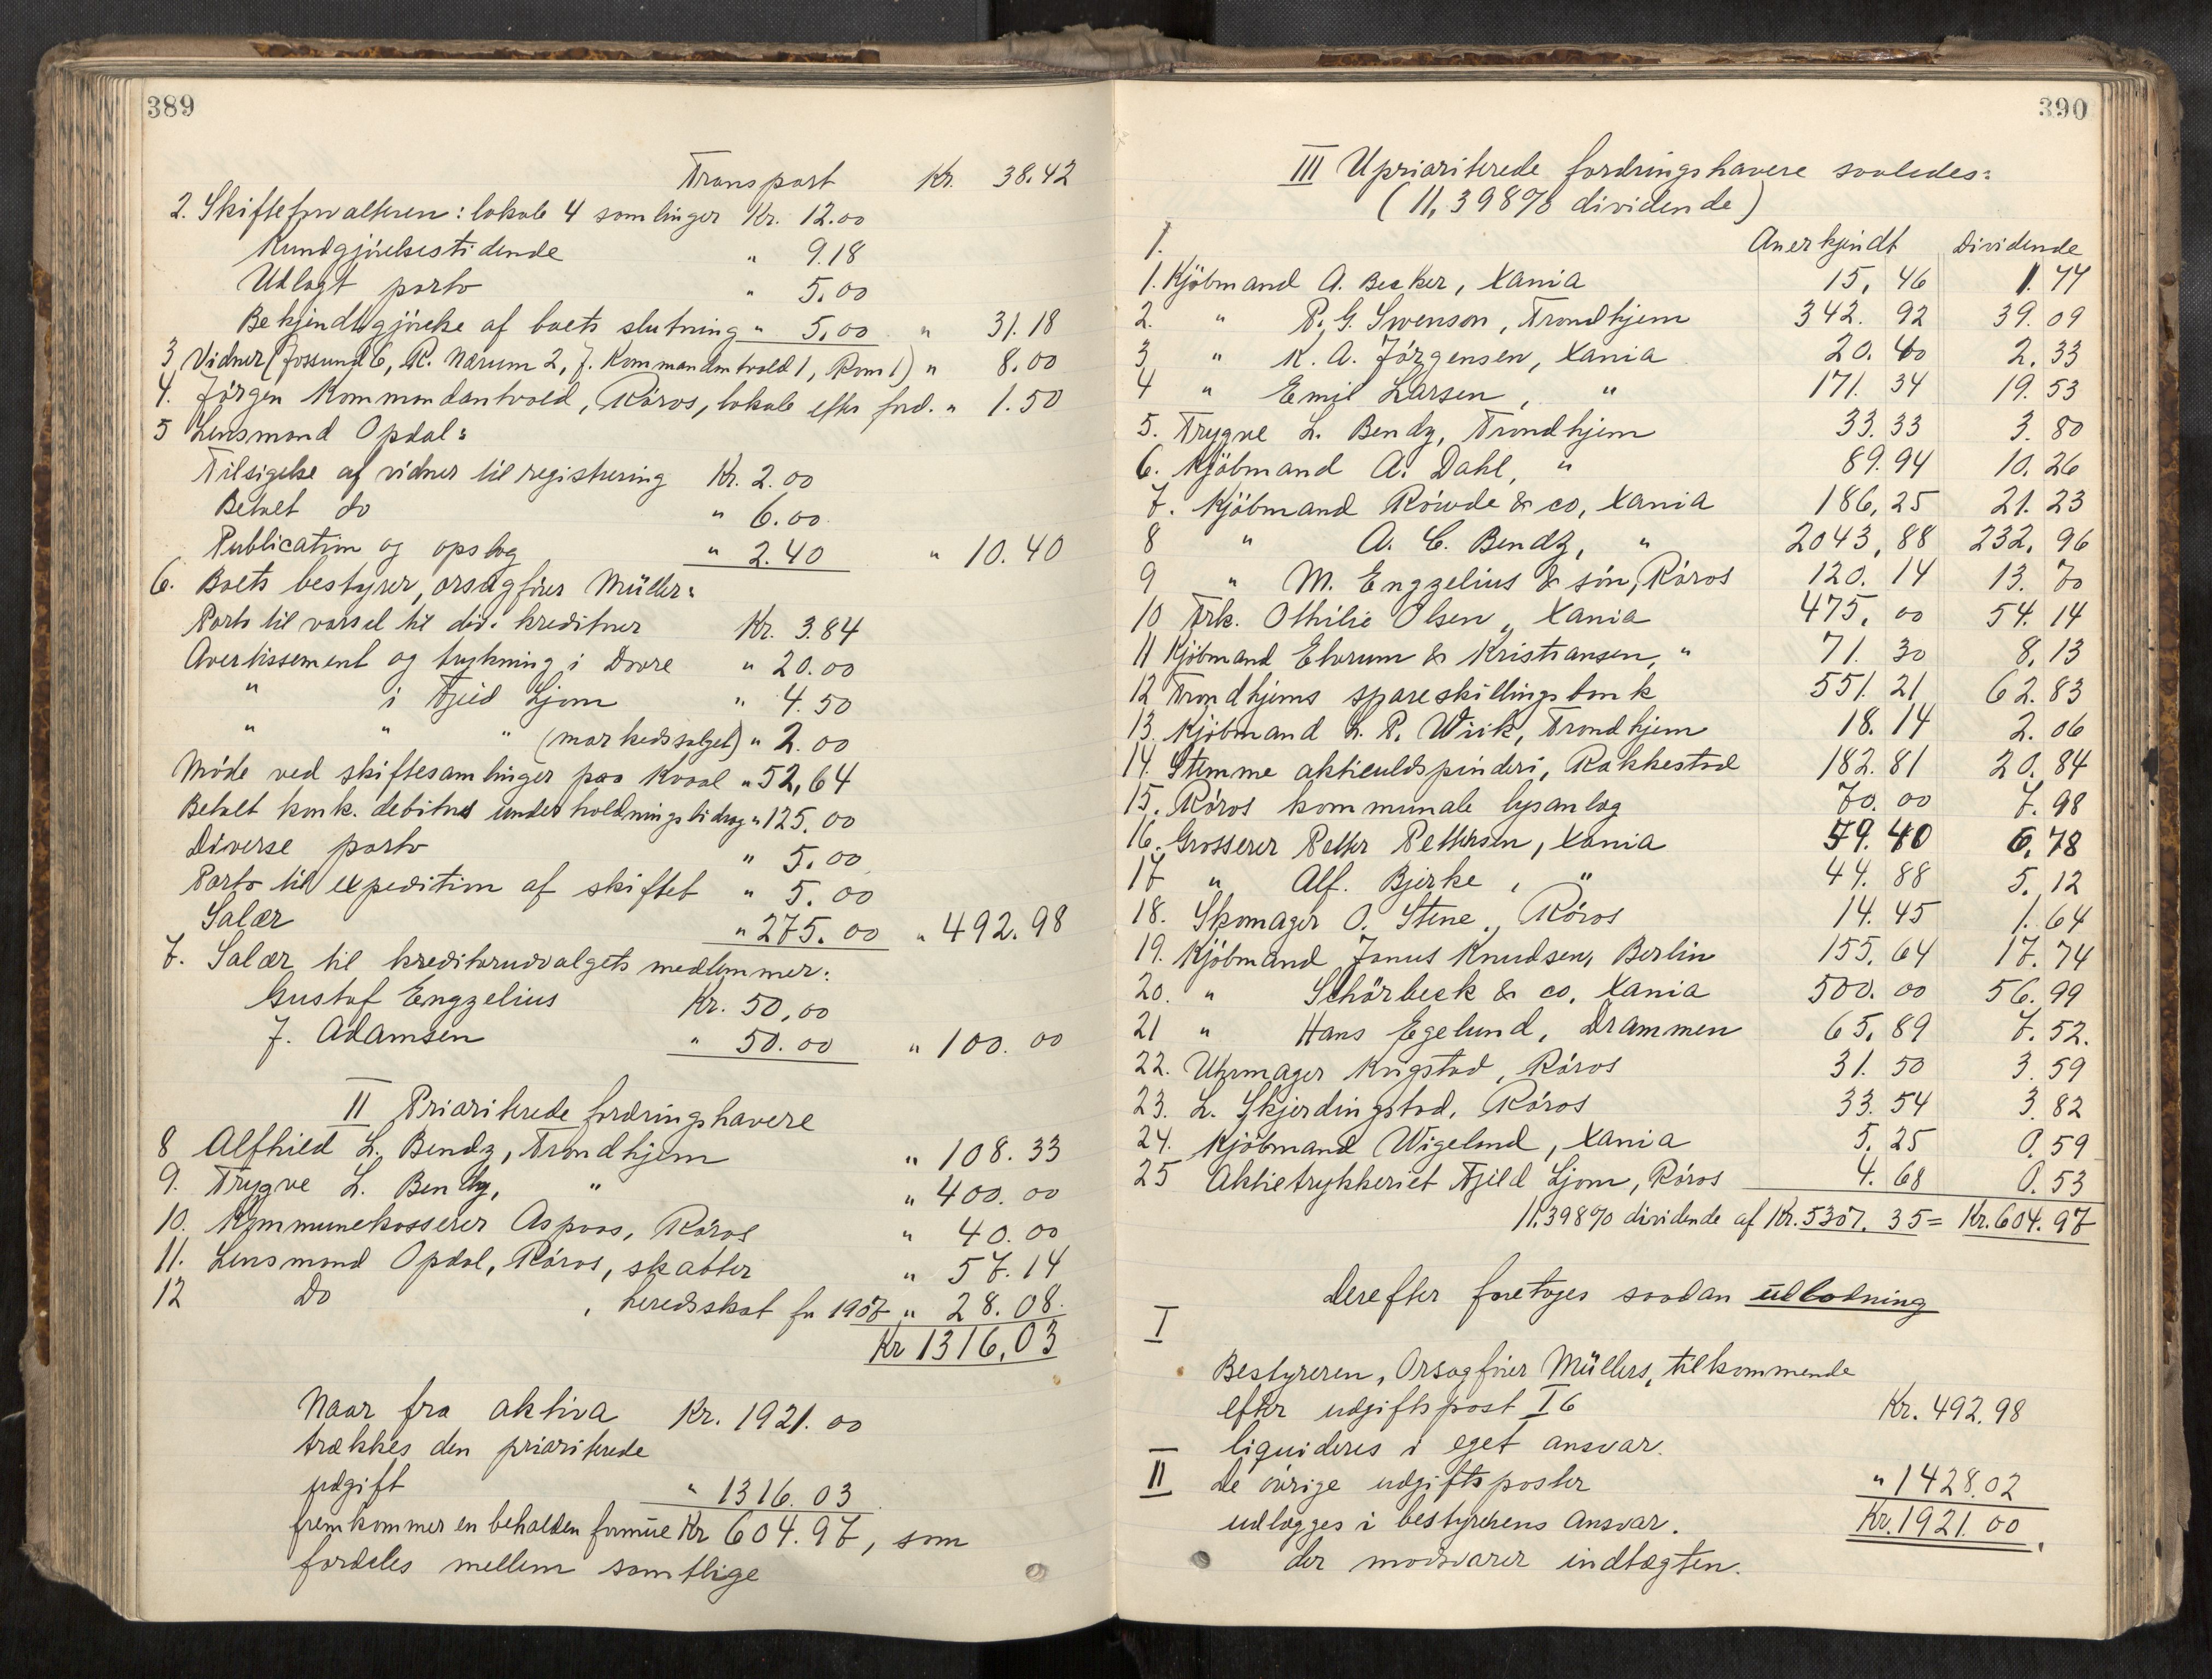 389
Transport Kr. 38.42
2. Skifteforvalteren: lokale 4 samlinger Kr. 12.00
Kundgjörelsestidende " 9.18
Udlagt porto " 5.00
Bekjendtgjörelse af boets slutning " 5.00 " 31.18
3 Vidner (Jossund 6, R. Nærum 2, J. Kommandantvold 1, Rom 1) " 8.00
4. Jörgen Kommandantvold, Röros, lokale efter ford. " 1.50
5 Lensmand Opdal:
Tilsigelse af vidner til registrering Kr. 2.00
Betalt do " 6.00
Publication og opslag " 2.40 " 10.40
6. Boets bestyrer, orsagförer Müller:
Porto til varsel til div. kreditorer Kr. 3.84
Avertissement og trykning i Dovre " 20.00
" i Fjeld Ljom " 4.50
" " " (markedssalget) " 2.00
Möde ved skiftesamlinger paa Kvaal " 52,64
Betalt konk. debitors underholdningsbidrag " 125.00
Diverse porto " 5.00
Porto til expedition af skiftet " 5.00
Salær " 275.00 " 492.98
7. Salær til kreditorudvalgets medlemmer:
Gustaf Engzelius Kr. 50,00
J. Adamsen " 50.00 " 100.00
II Prioriterede fordringshavere
8 Alfhild L. Bendz, Trondhjem " 108.33
9. Trygve L. Bendz, " " 400.00
10. Kommunekasserer Aspaas, Röros " 40.00
11. Lensmand Opdal, Röros, skatter " 57.14
12 Do , heredsskat for 1907 " 28.08
Kr 1316,03
Naar fra aktiva Kr. 1921.00
trækkes den prioriterede
udgift " 1316.03
fremkommer en beholden formue Kr 604.97, som
fordeles mellem samtlige
390
III Uprioriterede fordringshavere saaledes:
(11,398% dividende)
1. Anerkjendt Dividende
1. Kjöbmand A. Becker, Xania 15,46 1.77
2. " P. G. Svenson, Trondhjem 342.92 39.09
3, " K. A. Jörgensen, Xania 20.40 2.33
4 " Emil Larsen, " 171.34 19.53
5. Trygve L. Bendz, Trondhjem 33.33 3.80
6. Kjöbmand A. Dahl, " 89.94 10.26
7. Kjöbmand Röwde & co, Xania 186,25 21.23
8 " A. C. Bendz, " 2043,88 232.96
9 " M. Engzelius & sön, Röros 120.14 13.70
10 Frk. Othilie Olsen, Xania 475,00 54.14
11 Kjöbmand Elvrum & Kristiansen, " 71.30 8.13
12 Trondhjems spareskillingsbank 551.21 62.83
13. Kjöbmand L. P. Wiik, Trondhjem 18.14 2.06
14. Stemme aktieuldspinderi, Rakkestad 182.81 20.84
15. Röros kommunale lysanlæg 70.00 7.98
16. Grosserer Petter Pettersen, Xania 59.40 6,78
17 " Alf. Bjerke, " 44.88 5.12
18. Skomager O. Stene, Röros 14.45 1.64
19. Kjöbmand Janus Knudsen, Berlin 155.64 17.74
20. " Schörbeck & co, Xania 500.00 56.99
21 " Hans Egelund, Drammen 65.89 7.52.
22. Uhrmager Krigstad, Röros 31.50 3.59
23. L. Skjerdingstad, Röros 33.54 3.82
24. Kjöbmand Wigeland, Xania 5.25 0.59
25 Aktietrykkeriet Fjeld Ljom, Röros 4.68 0.53
11,398% dividende af Kr. 5307.35 = Kr. 604.97
Derefter foretages saadan udlodning
I
Bestyreren, Orsagförer Müllers, tilkommende
efter udgiftspost I 6 Kr. 492.98
liquideres i eget ansvar.
II De övrige udgiftsposter " 1428.02
udlægges i bestyrerens ansvar. Kr. 1921.00
der modsvarer indtægten.